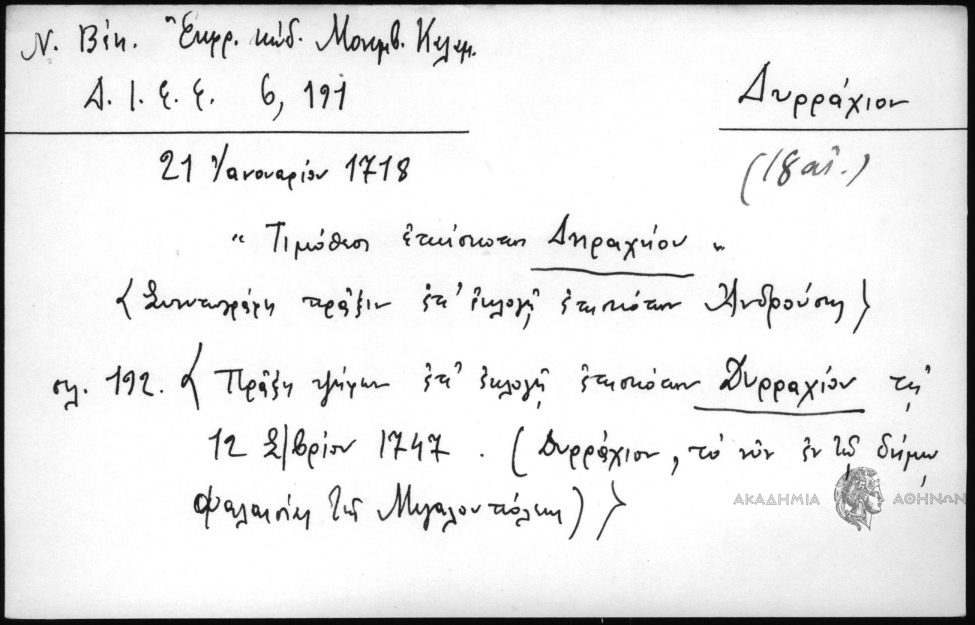 Ν. Βέη. Ἔκφρ. κώδ. Μονεμβ. Καλαμ.
Δ. Ι. Ε. Ε. 6, 191
Δυρράχιον
(18 αἰ.)
21 Ἰανουαρίου 1718
" Τιμόθεος ἐπίσκοπος Δηραχηου "
⟨ Συνυπογράφει πρᾶξιν ἐπ' ἐκλογῇ ἐπισκόπου Ἀνδρούσης ⟩
σελ. 192. ⟨ Πρᾶξις ψήφων ἐπ' ἐκλογῇ ἐπισκόπου Δυρραχίου τῇ
12 Σ/βρίου 1747 . ( Δυρράχιον, τὸ νῦν ἐν τῷ δήμῳ
Φαλαισίας τῆς Μεγαλοπόλεως ) ⟩
ΑΚΑΔΗΜΙΑ ΑΘΗΝΩΝ